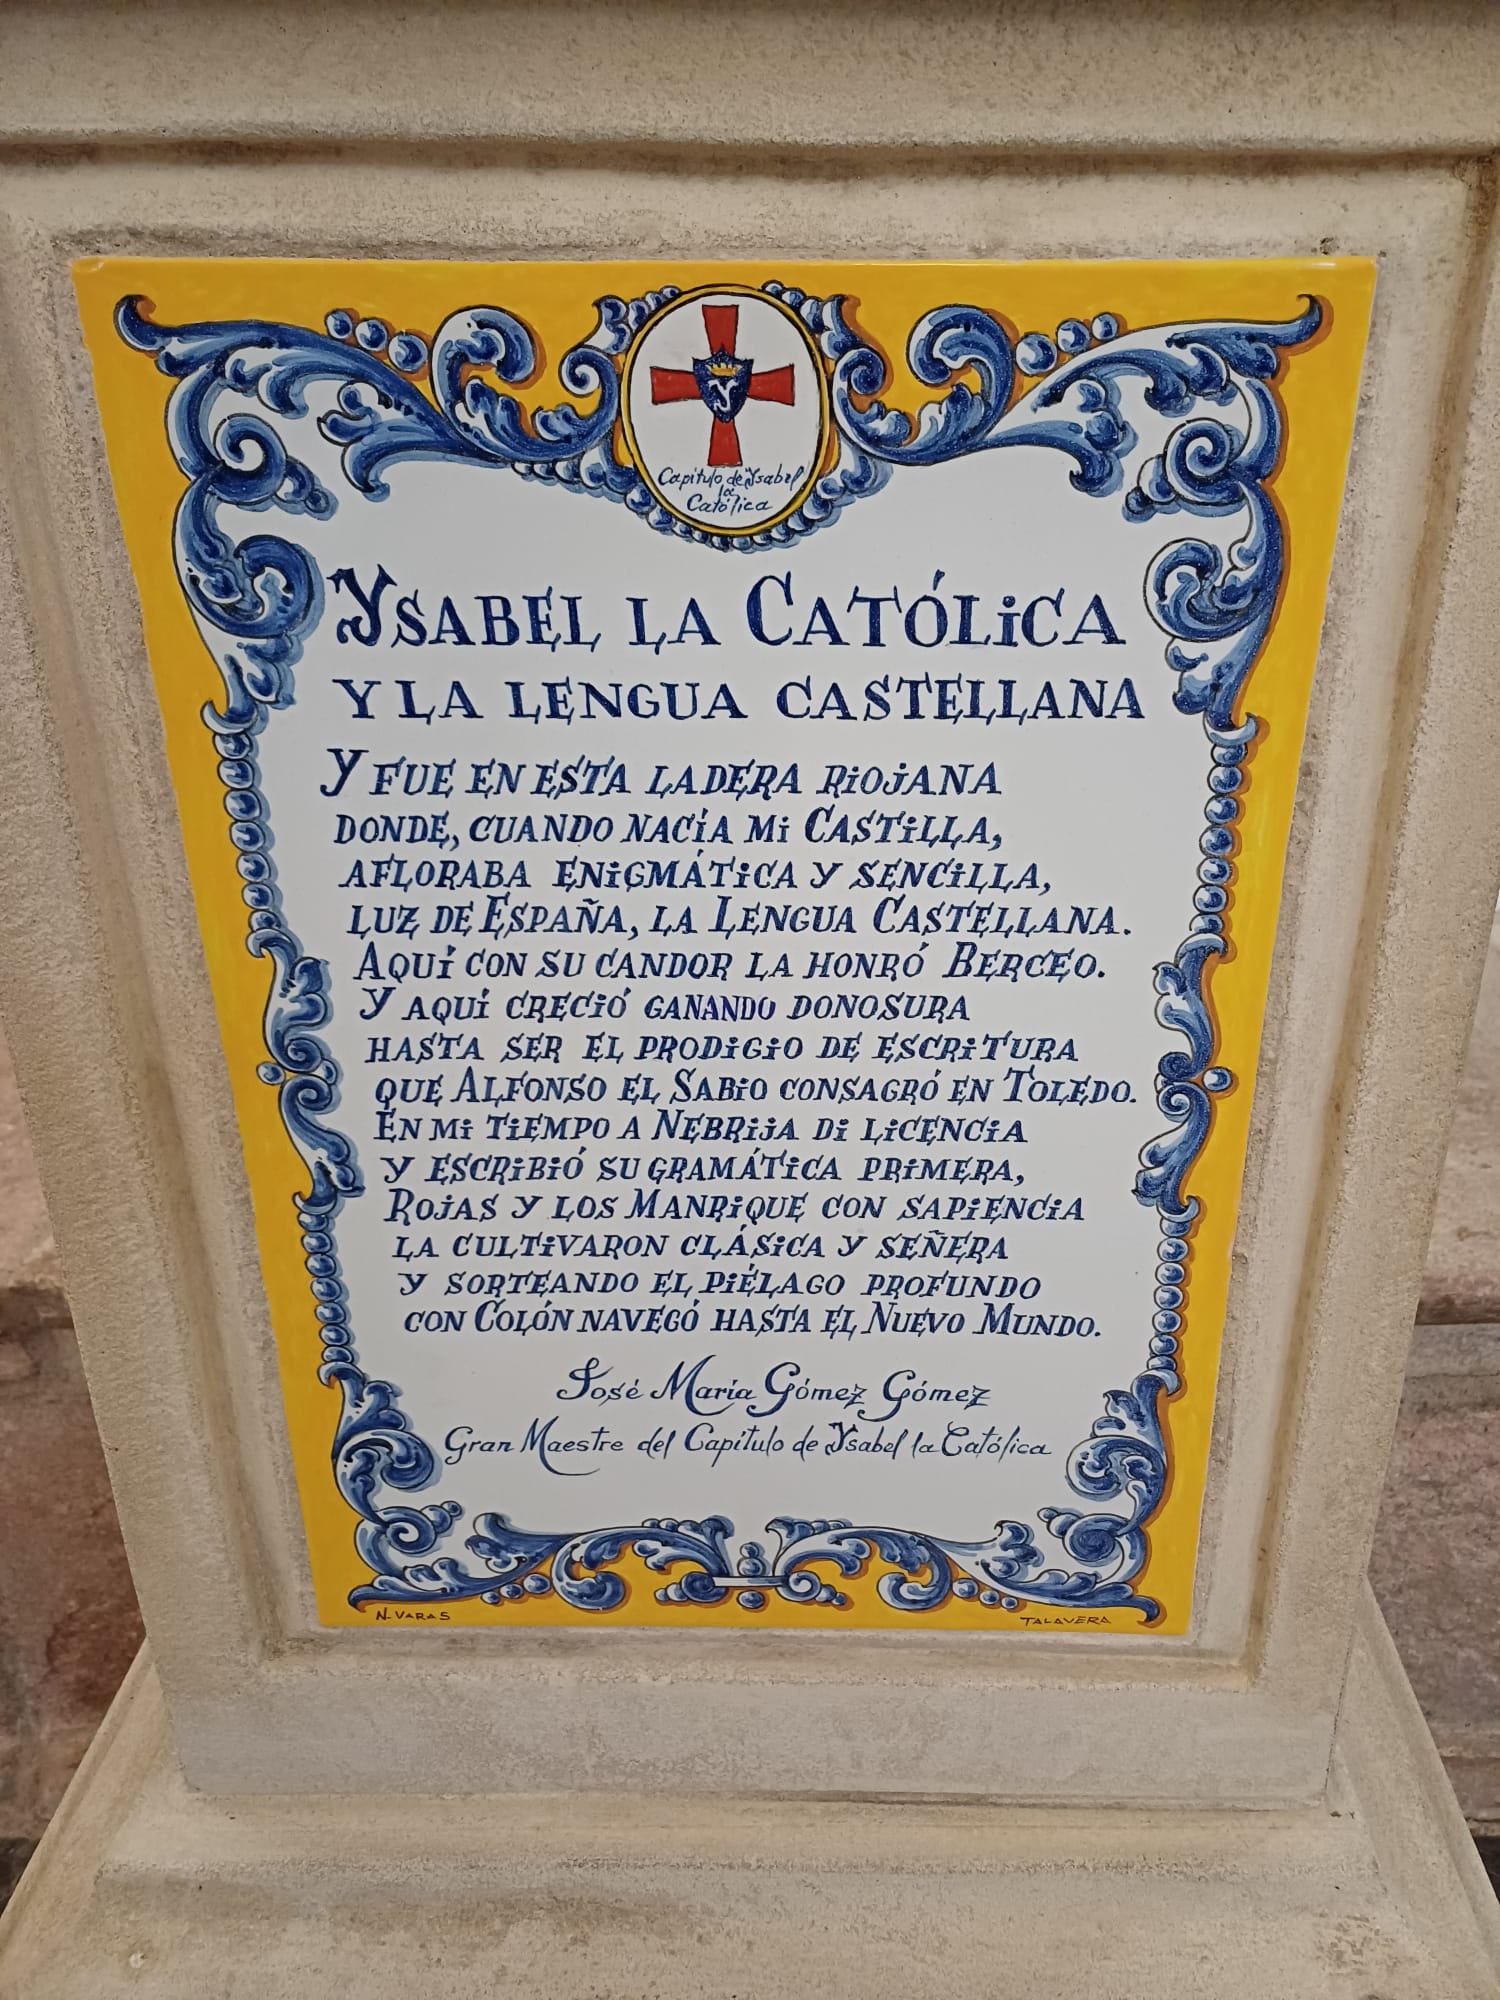 Capítulo de Ysabel
la
Católica
YSABEL LA CATÓLICA
Y LA LENGUA CASTELLANA
Y FUE EN ESTA LADERA RIOJANA
DONDE, CUANDO NACÍA MI CASTILLA,
AFLORABA ENIGMÁTICA Y SENCILLA,
LUZ DE ESPAÑA, LA LENGUA CASTELLANA.
AQUÍ CON SU CANDOR LA HONRÓ BERCEO.
Y AQUÍ CRECIÓ GANANDO DONOSURA
HASTA SER EL PRODIGIO DE ESCRITURA
QUE ALFONSO EL SABIO CONSAGRÓ EN TOLEDO.
EN MI TIEMPO A NEBRIJA DI LICENCIA
Y ESCRIBIÓ SU GRAMÁTICA PRIMERA,
ROJAS Y LOS MANRIQUE CON SAPIENCIA
LA CULTIVARON CLÁSICA Y SEÑERA
Y SORTEANDO EL PIÉLAGO PROFUNDO
CON COLÓN NAVEGÓ HASTA EL NUEVO MUNDO.
José María Gómez Gómez
Gran Maestre del Capítulo de Ysabel la Católica
N. VARAS
TALAVERA